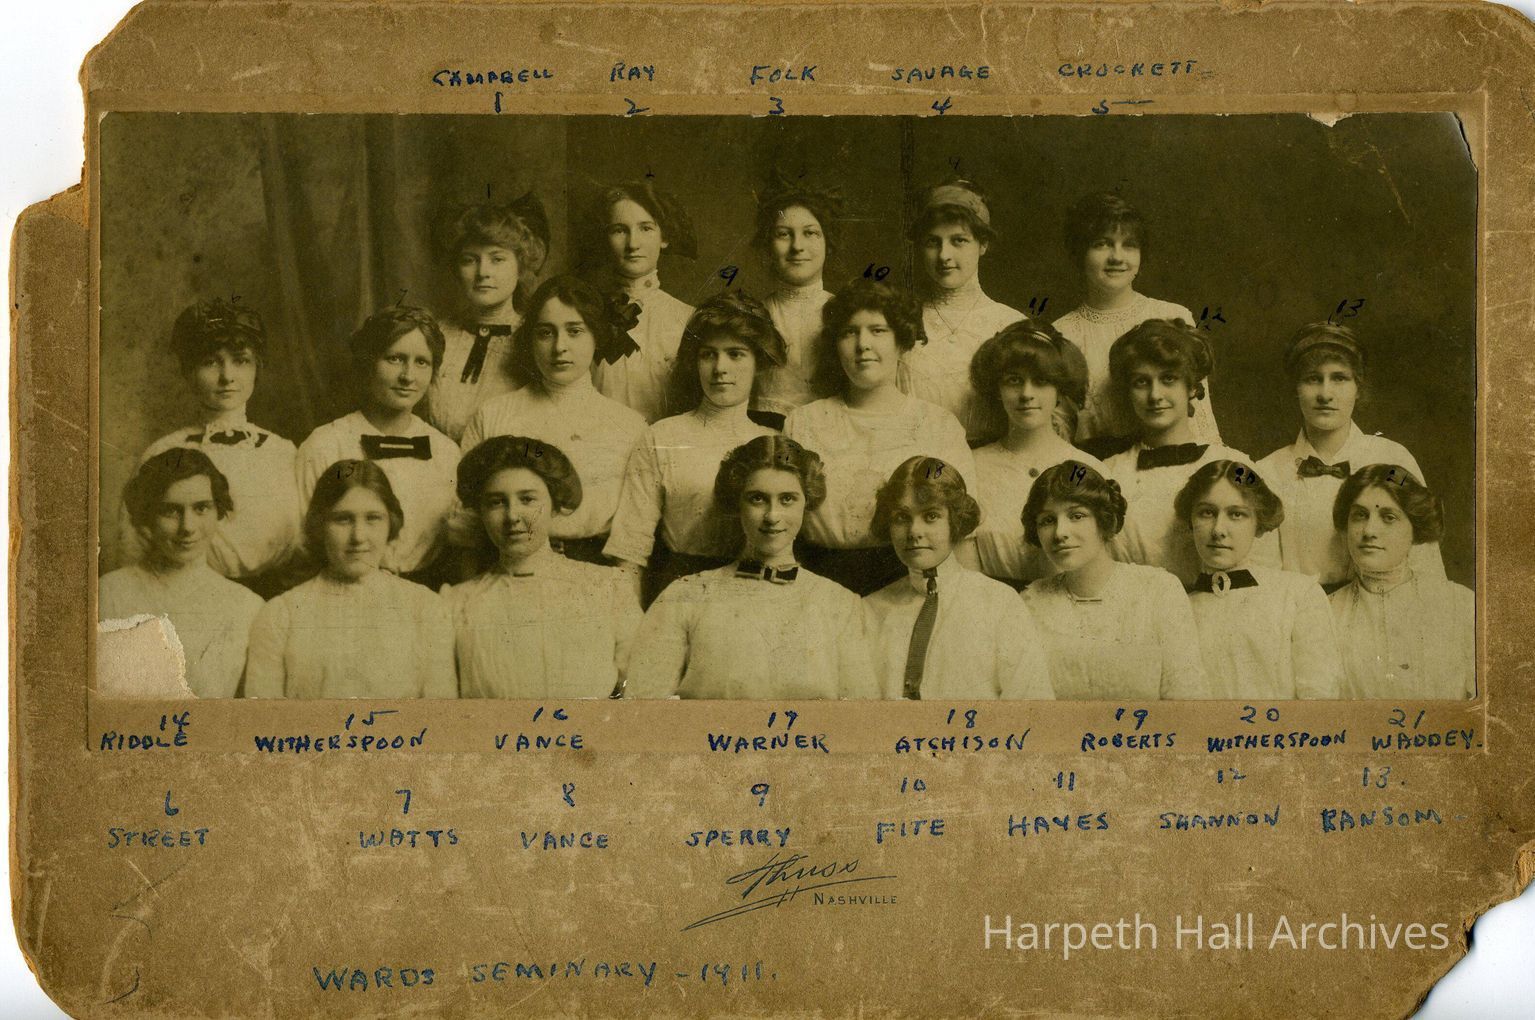 CAMPBELL RAY FOLK SAVAGE CROCKETT
1 2 3 4 5
1 2 3 4 5
9 10
6 7 11 12 13
14 15 16 17 18 19 20 21
14 15 16 17 18 19 20 21
RIDDLE WITHERSPOON VANCE WARNER ATCHISON ROBERTS WITHERSPOON WADDEY.
6 7 8 9 10 11 12 13.
STREET WATTS VANCE SPERRY FITE HAYES SHANNON RANSOM
Thuss
NASHVILLE
Harpeth Hall Archives
WARDS SEMINARY - 1911.